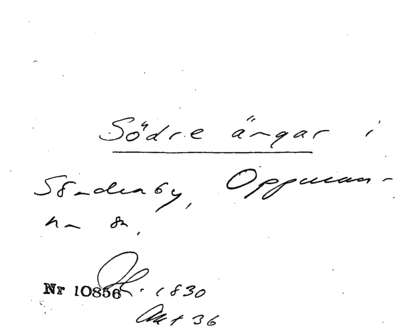 Södre ängar i
Sönderby, Oppman-
na sn.
Nr 10856 1830
Akt 36